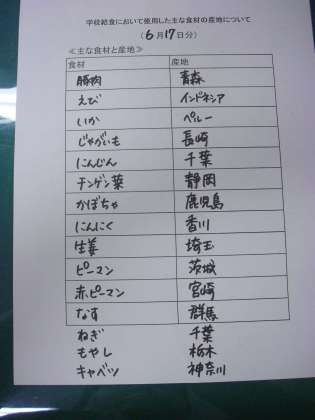 学校給食において使用した主な食材の産地について
(6月17日分)
≪主な食材と産地≫
食材 産地
豚肉 青森
えび インドネシア
いか ペルー
じゃがいも 長崎
にんじん 千葉
チンゲン菜 静岡
かぼちゃ 鹿児島
にんにく 香川
生姜 埼玉
ピーマン 茨城
赤ピーマン 宮崎
なす 群馬
ねぎ 千葉
もやし 栃木
キャベツ 神奈川